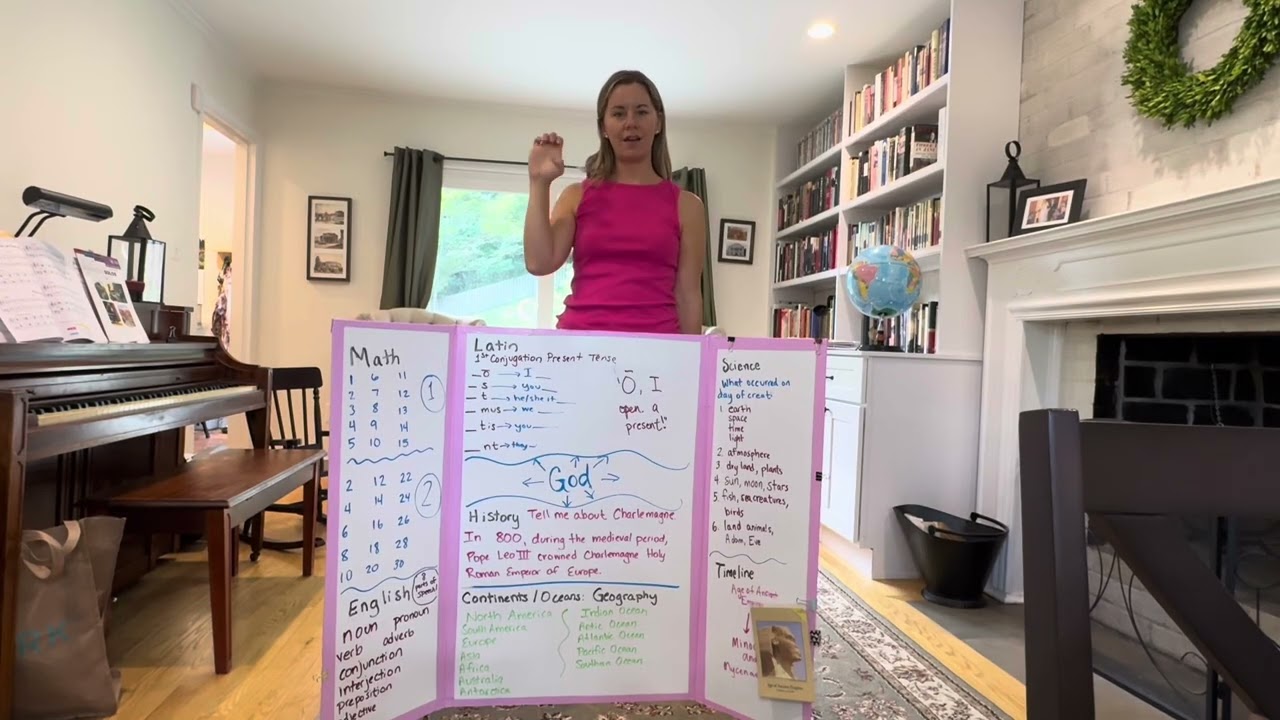 Math
1 6 11
2 7 12
3 8 13
4 9 14
5 10 15
1
2 12 22
4 14 24
6 16 26
8 18 28
10 20 30
2
English
noun pronoun
verb adverb
conjunction
interjection
preposition
Latin
1st Conjugation Present Tense
_ō → I _
_s → you _
_t → he/she it _
_mus → we _
_tis → you _
_nt → they _
"Ō, I
open a
present!"
God
History Tell me about Charlemagne
In 800, during the medieval period,
Pope Leo III crowned Charlemagne Holy
Roman Emperor of Europe.
Continents/Oceans: Geography
North America
South America
Europe
Asia
Africa
Australia
Antarctica
Indian Ocean
Arctic Ocean
Atlantic Ocean
Pacific Ocean
Southern Ocean
Science
What occurred on
day of creat
1. earth
space
time
light
2. atmosphere
3 dry land, plants
4 sun, moon, stars
5. fish, sea creatures,
birds
6. land animals,
Adam, Eve
Timeline
Age of Ancient